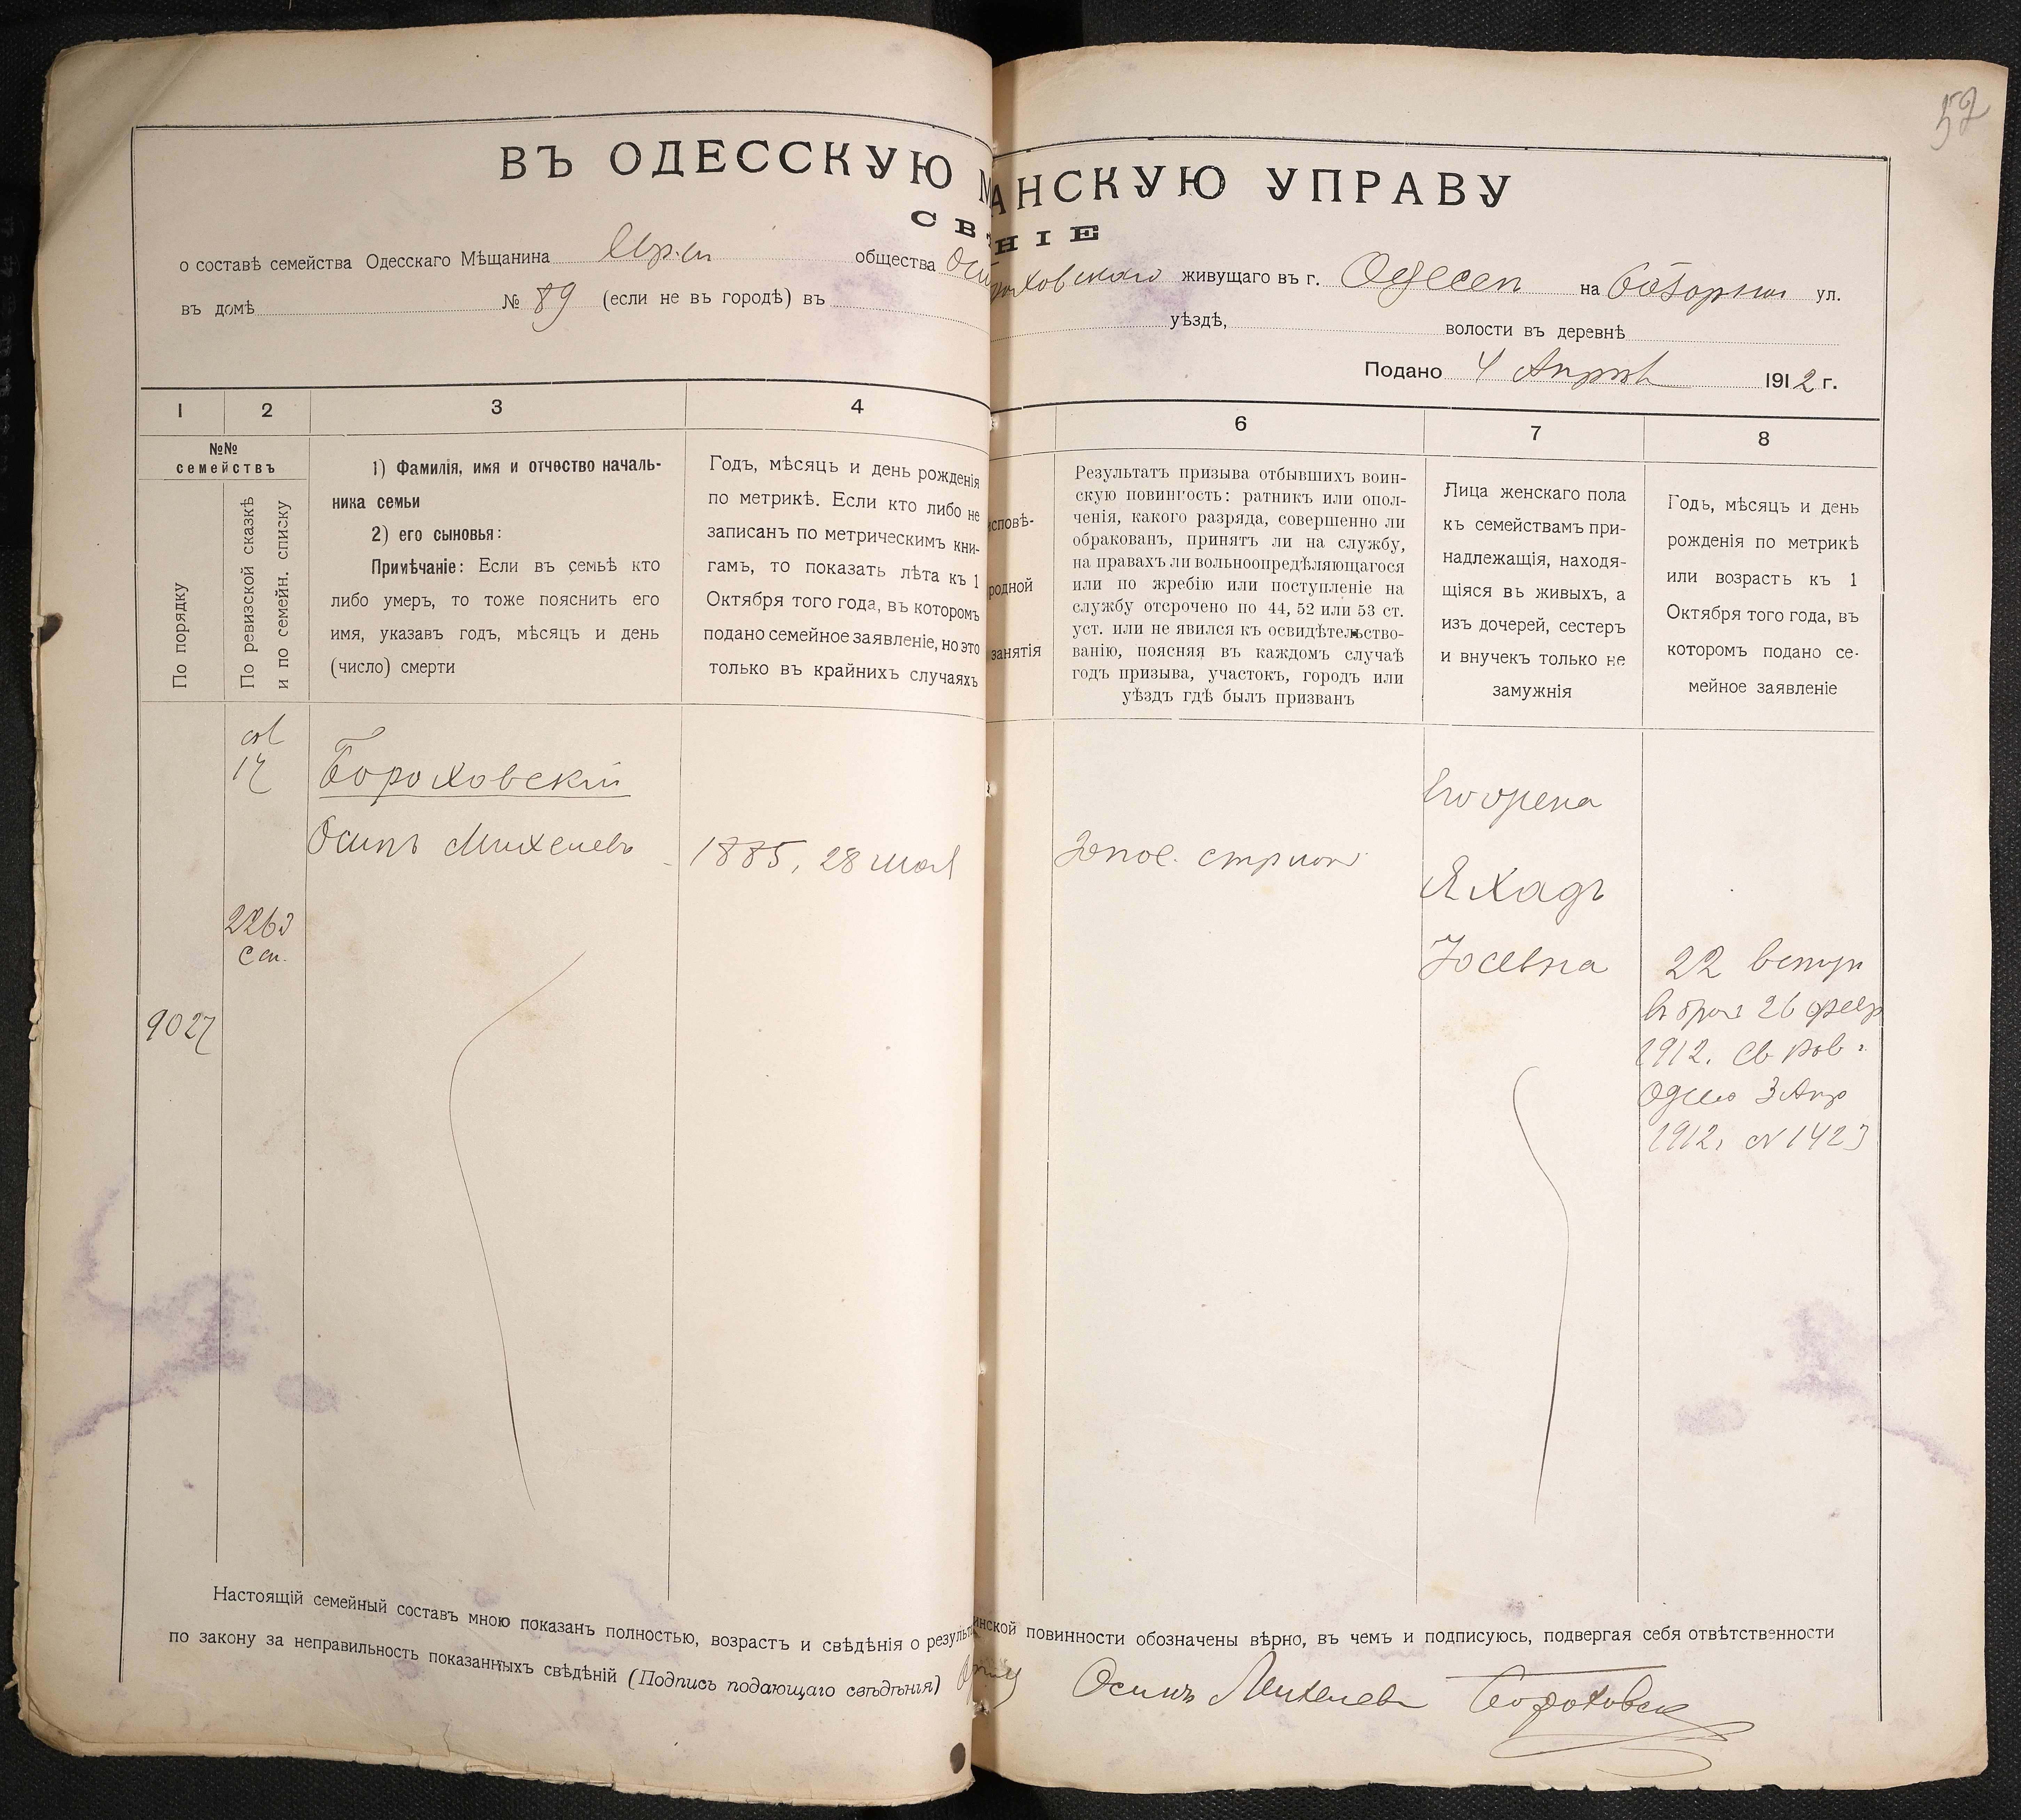 52
ВЪ ОДЕССКУЮ М АНСКУЮ УПРАВУ
СВ НІЕ
о составѣ семейства Одесскаго Мѣщанина общества живущаго въ г. Одессѣ на ул.
въ домѣ № 89 (если не въ городѣ) въ уѣздѣ, волости въ деревнѣ
Подано 4 Апрѣл 1912 г.
1 2 3 4 6 7 8
№№
семействъ
По порядку
По ревизской сказкѣ
и по семейн. списку
1) Фамилія, имя и отчество началь-
ника семьи
2) его сыновья:
Примѣчаніе: Если въ семьѣ кто
либо умеръ, то тоже пояснить его
имя, указавъ годъ, мѣсяцъ и день
(число) смерти
Годъ, мѣсяцъ и день рожденія
по метрикѣ. Если кто либо не
записанъ по метрическимъ кни-
гамъ, то показать лѣта къ 1
Октября того года, въ которомъ
подано семейное заявленіе, но это
только въ крайнихъ случаяхъ
исповѣ-
родной
занятія
Результатъ призыва отбывшихъ воин-
скую повинность: ратникъ или опол-
ченія, какого разряда, совершенно ли
обракованъ, принятъ ли на службу,
на правахъ ли вольноопредѣляющагося
или по жребію или поступленіе на
службу отсрочено по 44, 52 или 53 ст.
уст. или не явился къ освидѣтельство-
ванію, поясняя въ каждомъ случаѣ
годъ призыва, участокъ, городъ или
уѣздъ гдѣ былъ призванъ
Лица женскаго пола
къ семействамъ при-
надлежащія, находя-
щіяся въ живыхъ, а
изъ дочерей, сестеръ
и внучекъ только не
замужнія
Годъ, мѣсяцъ и день
рожденія по метрикѣ
или возрастъ къ 1
Октября того года, въ
которомъ подано се-
мейное заявленіе
Бороховскій
Осипъ Михелевъ
1885, 28 мая
Его жена
Яхадъ
Іосевна
22 вступ
въ бракъ 26 февр
1912. Св. Рав.
Одессы 3 Апр
1912, № 1423
9027
Настоящій семейный составъ мною показанъ полностью, возрастъ и свѣдѣнія о результ инской повинности обозначены вѣрно, въ чемъ и подписуюсь, подвергая себя отвѣтственности
по закону за неправильность показанныхъ свѣдѣній (Подпись подающаго свѣдѣнія) Осипъ Михелевъ Бороховск